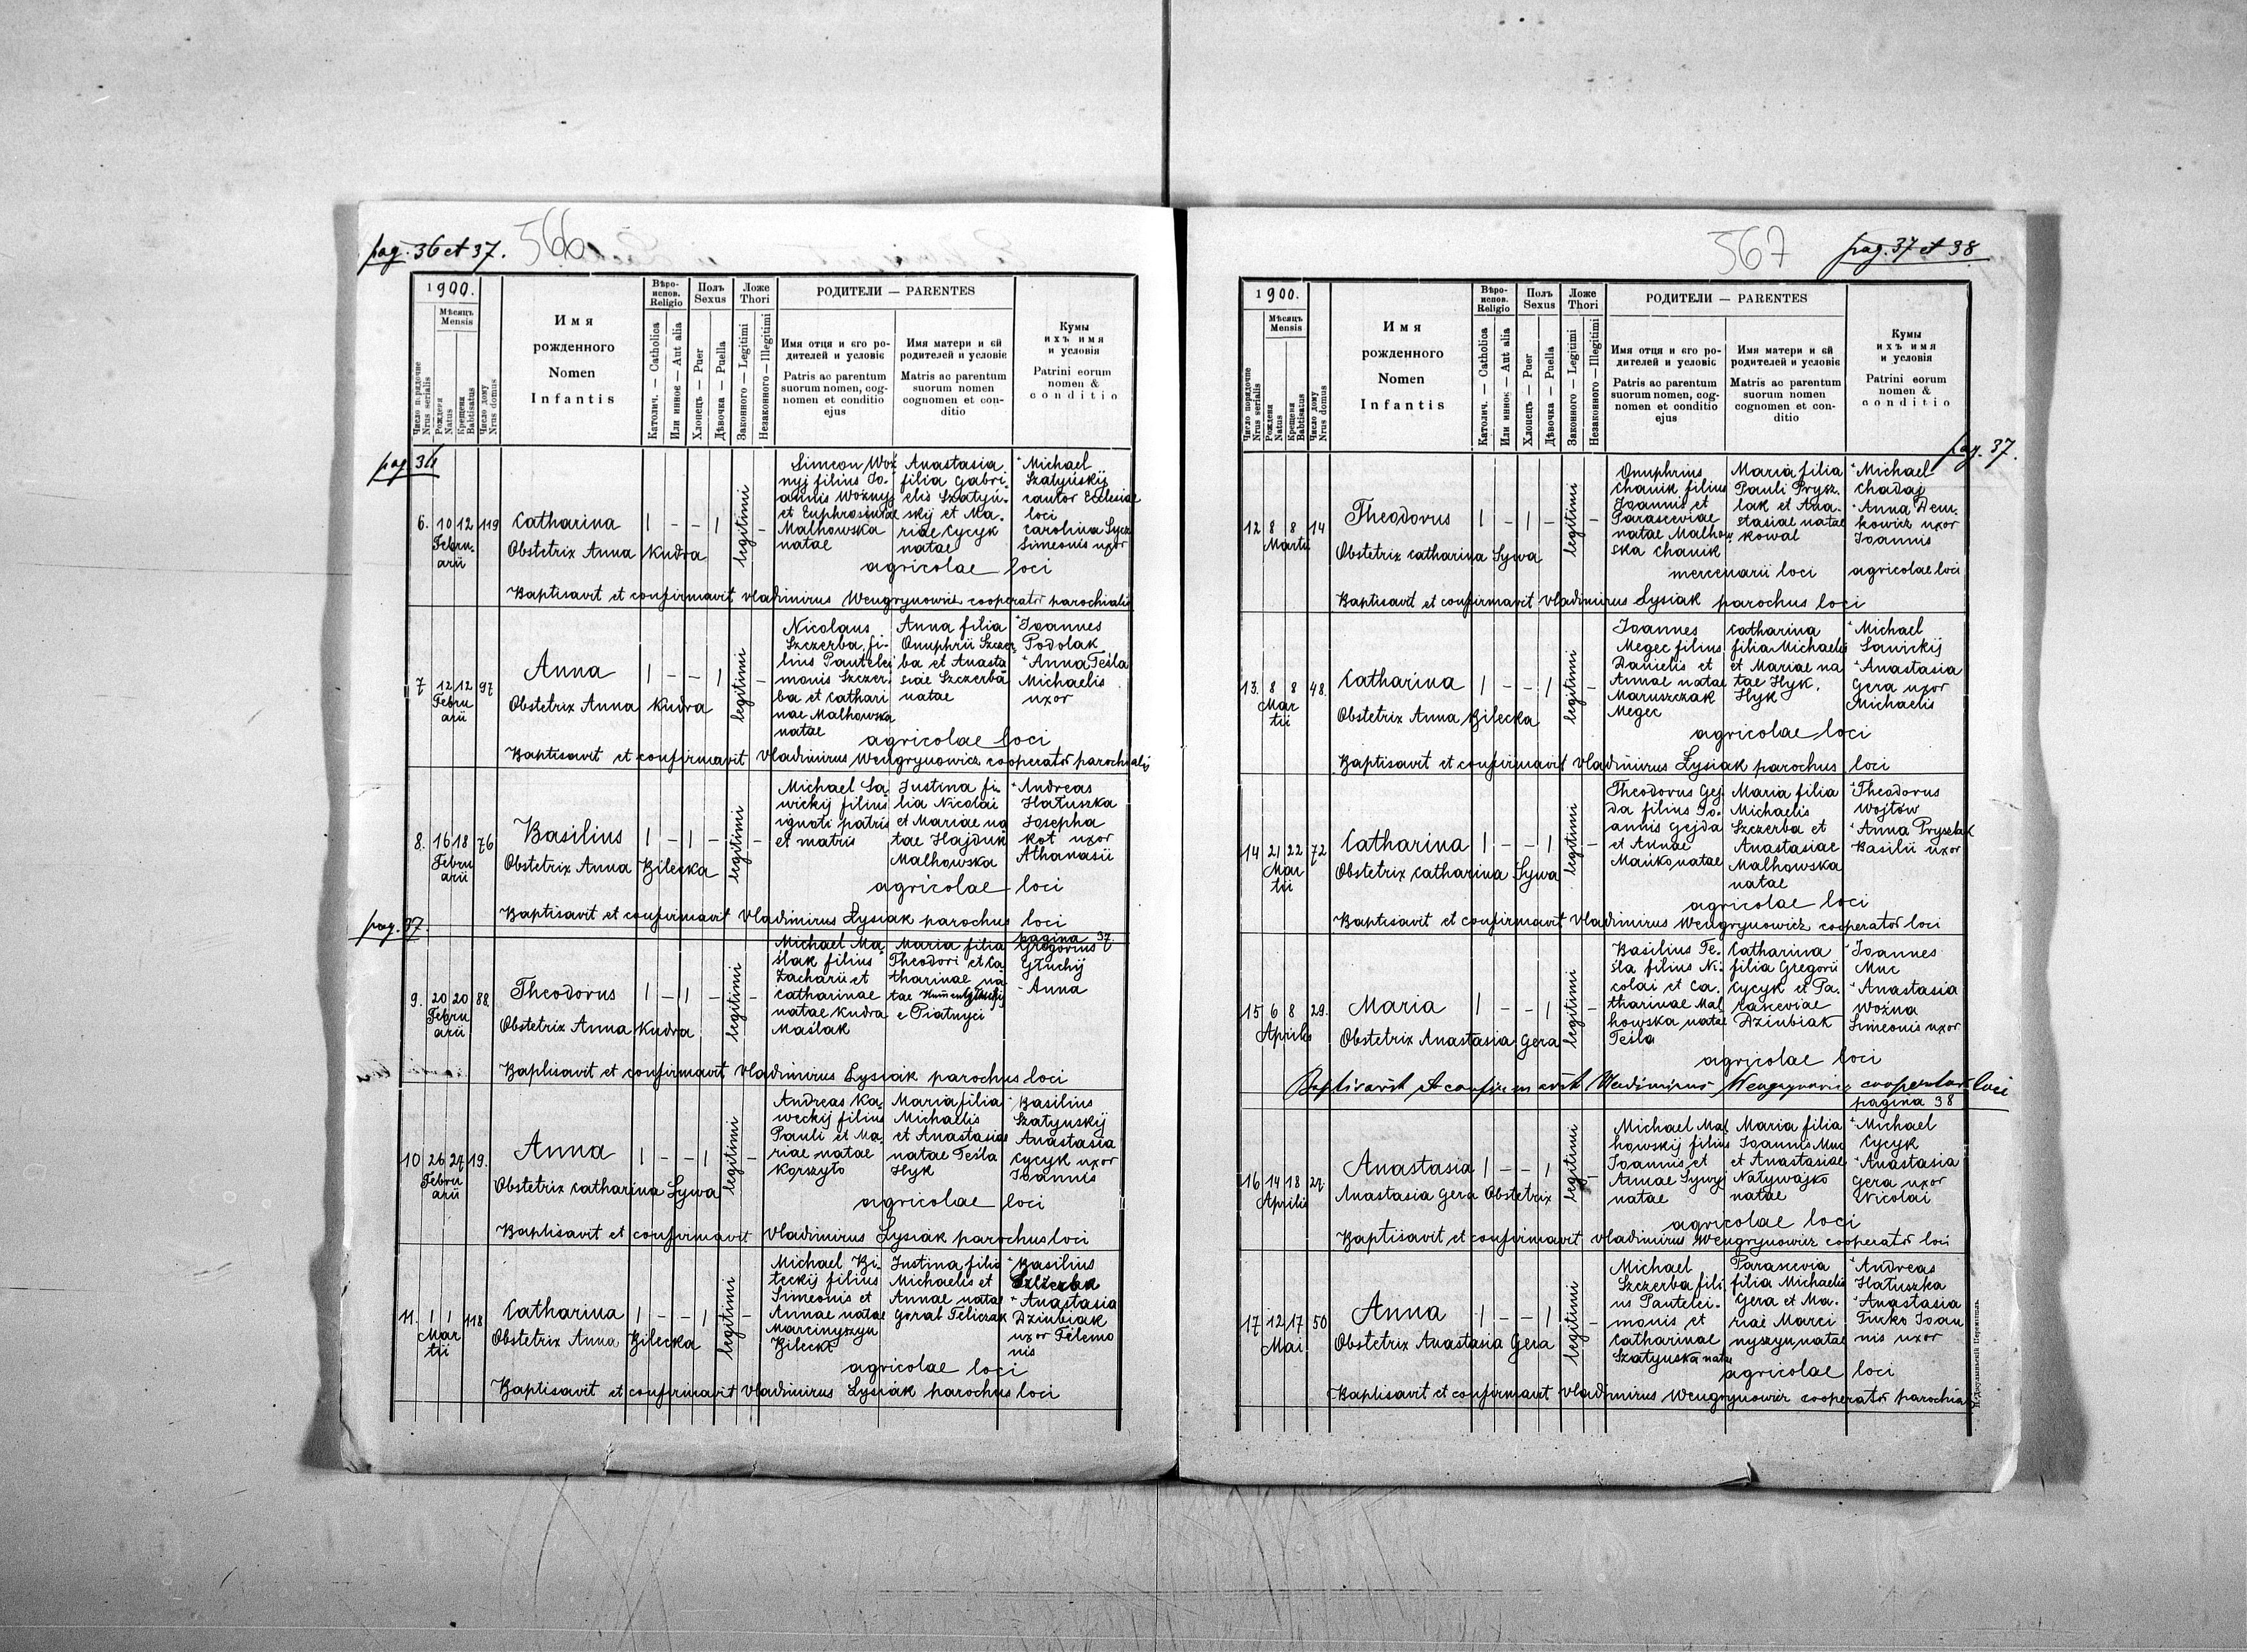 pag. 36 et 37.
566
1900.
Мѣсяцъ
Mensis
Число порядочне
Nrus serialis
Рожденя
Natus
Крещеня
Babtisatus
Число дому
Nrus domus
Имя
рожденного
Nomen
Infantis
Вѣро-
испов.
Religio
Католич. — Catholica
Или инное — Aut alia
Полъ
Sexus
Хлопецъ — Puer
Дѣвочка — Puella
Ложе
Thori
Законного — Legitimi
Незаконного — Illegitimi
РОДИТЕЛИ — PARENTES
Имя отця и его ро-
дителей и условіє
Patris ac parentum
suorum nomen, cog-
nomen et conditio
ejus
Имя матери и єй
родителей и условіє
Matris ac parentum
suorum nomen
cognomen et con-
ditio
Кумы
ихъ имя
и условія
Patrini eorum
nomen &
conditio
pag. 36
6. 10 12 119
Febru-
arii
Catharina | - - | legitimi -
Obstetrix Anna Kudra
Simeon Woź
nyj filius Jo-
annis Woźnyj
et Euphrosinae
Malhowska
natae
Anastasia
filia Gabri
elis Szatyń-
skij et Ma-
riae Cycyk
natae
Michael
Szatyńskij
cantor Ecclesiae
loci
Carolina Sycz
Simeonis uxor
agricolae loci
Baptisavit et confirmavit Vladimirus Wengrynowicz cooperator parochialis
7 12 12 97
Febru
arii
Anna | - - | legitimi -
Obstetrix Anna Kudra
Nicolaus
Szczerba fi-
lius Pantelei
monis Szczer
ba et Cathari
nae Malhowska
natae
Anna filia
Onuphrii Szczer
ba et Anasta
siae Szczerba
natae
Joannes
Podolak
Anna Teśla
Michaelis
uxor
agricolae loci
Baptisavit et confirmavit Vladimirus Wengrynowicz cooperator parochialis
8. 16 18 76
Febru
arii
Basilius | - | - legitimi -
Obstetrix Anna Bilecka
Michael Sa
wickij filius
ignoti patris
et matris
Justina fi-
lia Nicolai
et Mariae na
tae Hajduk
Malhowska
Andreas
Hałuszka
Josepha
Kot uxor
Athanasii
agricolae loci
Baptisavit et confirmavit Vladimirus Łysiak parochus loci
pag. 37
pagina 37.
9. 20 20 88.
Febru
arii
Theodorus | - | - legitimi -
Obstetrix Anna Kudra
Michael Ma
ślak filius
Zacharii et
Catharinae
natae Kudra
Maślak
Maria filia
Theodori et Ca
tharinae na
tae
e Piatnyci
Gregorius
Głuchij
Anna
Baptisavit et confirmavit Vladimirus Łysiak parochus loci
10 26 27 19.
Febru
arii
Anna | - - | legitimi -
Obstetrix Catharina Sywa
Andreas Ka
weckij filius
Pauli et Ma
riae natae
Korszyło
Maria filia
Michaelis
et Anastasiae
natae Teśla
Hyk
Basilius
Szatyńskij
Anastasia
Cycyk uxor
Joannis
agricolae loci
Baptisavit et confirmavit Vladimirus Łysiak parochus loci
11. 1 1 118
Mar
tii
Catharina | - - | legitimi -
Obstetrix Anna Bilecka
Michael Bi-
leckij filius
Simeonis et
Annae natae
Marcinyszyn
Bilecki
Justina filia
Michaelis et
Annae natae
Goral Teliczak
Basilius
Szczerba
Anastasia
Dziubiak
uxor Filemo
nis
agricolae loci
Baptisavit et confirmavit Vladimirus Łysiak parochus loci
567
pag. 37 et 38
1900.
Мѣсяцъ
Mensis
Число порядочне
Nrus serialis
Рожденя
Natus
Крещеня
Babtisatus
Число дому
Nrus domus
Имя
рожденного
Nomen
Infantis
Вѣро-
испов.
Religio
Католич. — Catholica
Или инное — Aut alia
Полъ
Sexus
Хлопецъ — Puer
Дѣвочка — Puella
Ложе
Thori
Законного — Legitimi
Незаконного — Illegitimi
РОДИТЕЛИ — PARENTES
Имя отця и его ро-
дителей и условіє
Patris ac parentum
suorum nomen, cog-
nomen et conditio
ejus
Имя матери и єй
родителей и условіє
Matris ac parentum
suorum nomen
cognomen et con-
ditio
Кумы
ихъ имя
и условія
Patrini eorum
nomen &
conditio
pag. 37.
12 8 8 14
Martii
Theodorus | - | - legitimi -
Obstetrix Catharina Sywa
Onuphrius
Chanik filius
Joannis et
Parasceviae
natae Malhow
ska Chanik
Maria filia
Pauli Prysz-
lak et Ana-
stasiae natae
Kowal
Michael
Chadaj
Anna Dem-
kowicz uxor
Joannis
mercenarii loci agricolae loci
Baptisavit et confirmavit Vladimirus Łysiak parochus loci
13. 8 8 48.
Mar
tii
Catharina | - - | legitimi -
Obstetrix Anna Bilecka
Joannes
Megec filius
Danielis et
Annae natae
Maruszczak
Megec
Catharina
filia Michaelis
et Mariae na
tae Hyk.
Hyk
Michael
Sawickij
Anastasia
Gera uxor
Michaelis
agricolae loci
Baptisavit et confirmavit Vladimirus Łysiak parochus loci
14 21 22 72
Mar
tii
Catharina | - - | legitimi -
Obstetrix Catharina Sywa
Theodorus Gej
da filius Jo-
annis Gejda
et Annae
Mańko natae
Maria filia
Michaelis
Szczerba et
Anastasiae
Malhowska
natae
Theodorus
Wojtów
Anna Pryszlak
Basilii uxor
agricolae loci
Baptisavit et confirmavit Vladimirus Wengrynowicz cooperator loci
15 6 8 29.
Aprilis
Maria | - - | legitimi -
Obstetrix Anastasia Gera
Basilius Te-
śla filius Ni-
colai et Ca-
tharinae Mal
howska natae
Teśla
Catharina
filia Gregorii
Cycyk et Pa-
rasceviae
Dziubiak
Joannes
Muc
Anastasia
Woźna
Simeonis uxor
agricolae loci
Baptisavit et confirmavit Vladimirus Wengrynowicz cooperator loci
pagina 38
16 14 18 27.
Aprilis
Anastasia | - - | legitimi -
Anastasia Gera Obstetrix
Michael Mal
howskij filius
Joannis et
Annae Sywyj
natae
Maria filia
Joannis Muc
et Anastasiae
Natywajko
natae
Michael
Cycyk
Anastasia
Gera uxor
Nicolai
agricolae loci
Baptisavit et confirmavit Vladimirus Wengrynowicz cooperator loci
17 12 17 50
Mai
Anna | - - | legitimi -
Obstetrix Anastasia Gera
Michael
Szczerba fili
us Pantelei-
monis et
Catharinae
Szatyńska natae
Parascevia
filia Michaelis
Gera et Ma-
riae Marci
nyszyn natae
Andreas
Hałuszka
Anastasia
Furko Joan
nis uxor
agricolae loci
Baptisavit et confirmavit Vladimirus Wengrynowicz cooperator parochia